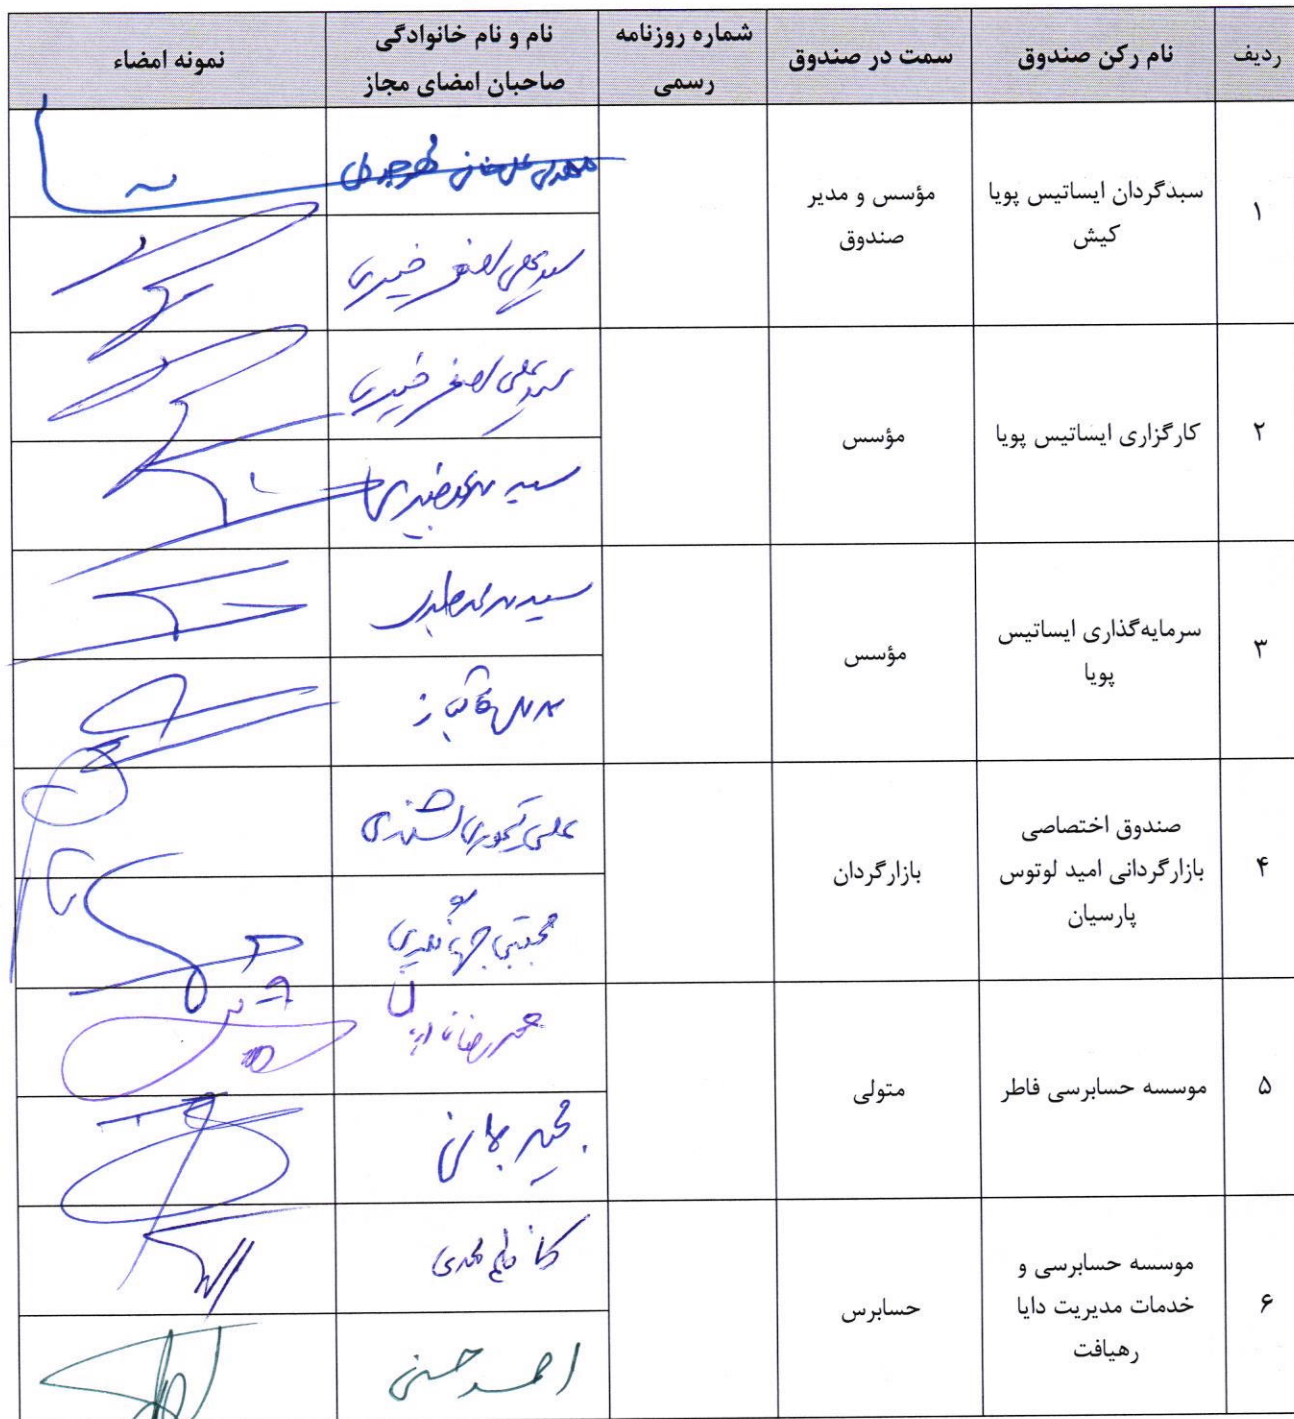 ردیف
نام رکن صندوق
سمت در صندوق
شماره روزنامه
رسمی
نام و نام خانوادگی
صاحبان امضای مجاز
نمونه امضاء
۱
سبدگردان ایساتیس پویا
کیش
مؤسس و مدیر
صندوق
سید علی اصغر خبیری
۲
کارگزاری ایساتیس پویا
مؤسس
سید علی اصغر خبیری
سید
۳
سرمایه‌گذاری ایساتیس
پویا
مؤسس
سید
۴
صندوق اختصاصی
بازارگردانی امید لوتوس
پارسیان
بازارگردان
علی تیموری
مجتبی جهانگیری
۵
موسسه حسابرسی فاطر
متولی
۶
موسسه حسابرسی و
خدمات مدیریت دایا
رهیافت
حسابرس
محمدی
احمد حسنی